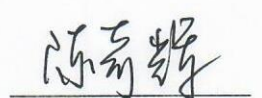 陈奇辉